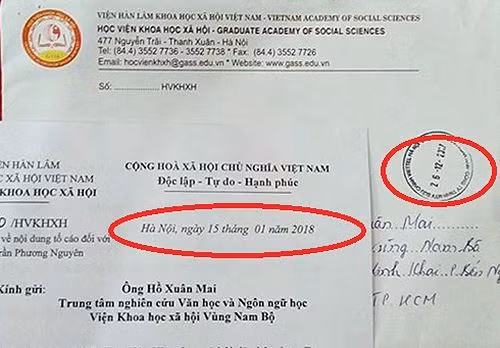 VIỆN HÀN LÂM KHOA HỌC XÃ HỘI VIỆT NAM - VIETNAM ACADEMY OF SOCIAL SCIENCES
HỌC VIỆN KHOA HỌC XÃ HỘI - GRADUATE ACADEMY OF SOCIAL SCIENCES
477 Nguyễn Trãi - Thanh Xuân - Hà Nội
Tel: (84.4) 3552 7736 - 3552 7738 * Fax: (84.4) 3552 7726
Email: hocvienkhxh@gass.edu.vn * Website: www.gass.edu.vn
Số: .................... HVKHXH
IỆN HÀN LÂM
C XÃ HỘI VIỆT NAM
KHOA HỌC XÃ HỘI
/HVKHXH
về nội dung tố cáo đối với
rần Phương Nguyên
CỘNG HOÀ XÃ HỘI CHỦ NGHĨA VIỆT NAM
Độc lập - Tự do - Hạnh phúc
Hà Nội, ngày 15 tháng 01 năm 2018
Kính gửi:
Ông Hồ Xuân Mai
Trung tâm nghiên cứu Văn học và Ngôn ngữ học
Viện Khoa học xã hội Vùng Nam Bộ
Mai
Nam Bộ
Khai, P. Bến
TP. HCM